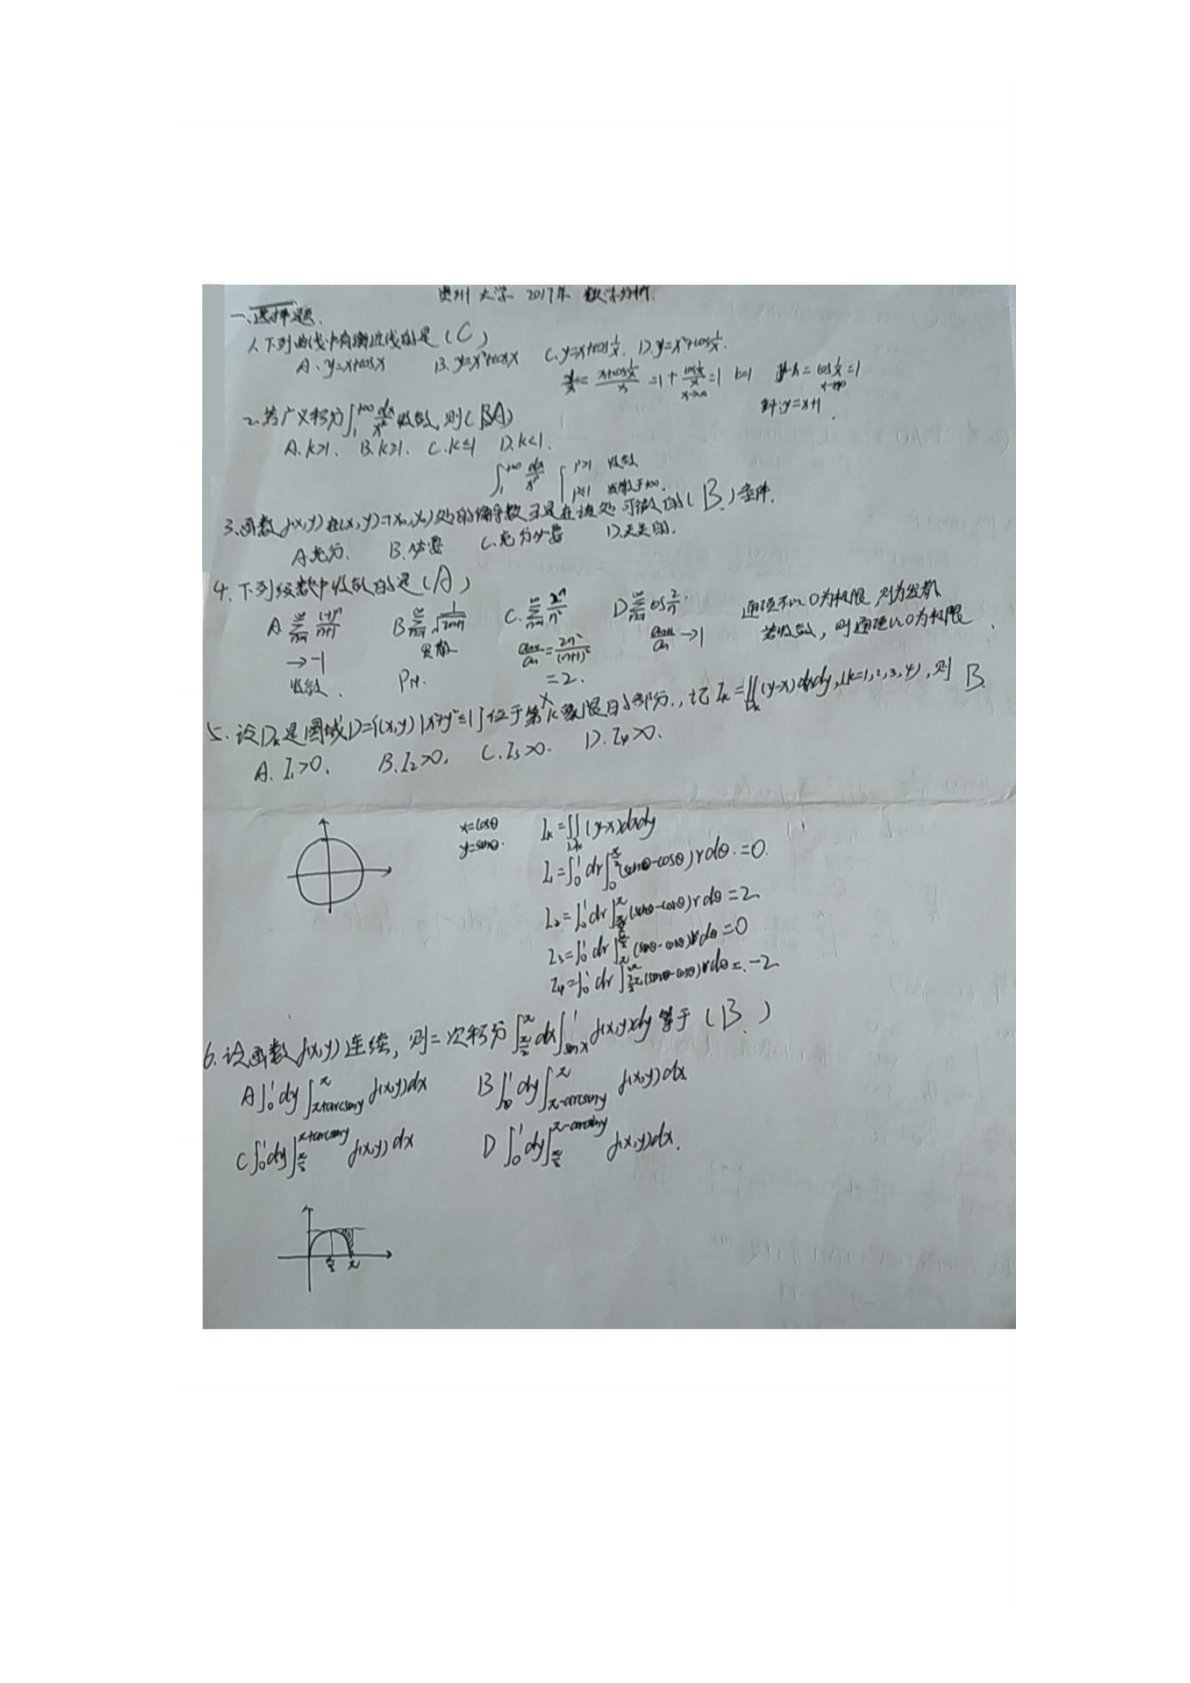 贵州大学 2017年 数学分析.
一、选择题.
1.下列曲线中有渐近线的是(C)
A. y=x+cosx B. y=x²+cosx C. y=x+cos1/x. D. y=x²+cos1/x.
y/x = (x+cos1/x)/x =1+ (cos1/x)/x =1 k=1 y-x = cos1/x =1
x→∞ x→∞
斜:y=x+1.
2.若广义积分∫₁^{+∞} dx/x^k 收敛,则(A)
A. k>1. B. k≥1. C. k≤1 D. k<1.
∫₁^{+∞} dx/x^p { p>1 收敛
p≤1 发散于+∞.
3.函数f(x,y)在(x,y)=(x₀,y₀)处的偏导数 是在该处可微的(B.)条件.
A.充分. B.必要 C.充分必要 D.无关的.
4.下列级数中收敛的是(A)
A. ∑_{n=1}^∞ (-1)^n/(n+1) B. ∑_{n=1}^∞ 1/√(2n+1) C. ∑_{n=1}^∞ 2^n/n² D. ∑_{n=1}^∞ cos2/n. 通项不以0为极限,则为发散
→-1 发散 a_{n+1}/a_n = 2n²/(n+1)² a_{n+1}/a_n →1 若收敛,则通项以0为极限.
收敛. P14. =2.
5.设D_k是圆域D={(x,y)|x²+y²≤1}位于第k象限的部分.,记I_k=∬_{D_k}(y-x)dxdy,(k=1,2,3,4),则 B
A. I₁>0. B. I₂>0. C. I₃>0. D. I₄>0.
x=cosθ I_k=∬_{D_k}(y-x)dxdy
y=sinθ.
I₁=∫₀¹dr∫₀^{π/2}(sinθ-cosθ)rdθ.=0.
I₂=∫₀¹dr∫_{π/2}^π(sinθ-cosθ)rdθ=2
I₃=∫₀¹dr∫_π^{3π/2}(sinθ-cosθ)rdθ=0
I₄=∫₀¹dr∫_{3π/2}^{2π}(sinθ-cosθ)rdθ=-2
6.设函数f(x,y)连续,则二次积分∫_{π/2}^π dx∫_{sinx}^1 f(x,y)dy等于(B.)
A∫₀¹dy∫_{π+arcsiny}^π f(x,y)dx B∫₀¹dy∫_{π-arcsiny}^π f(x,y)dx
C∫₀¹dy∫_{π/2}^{π+arcsiny} f(x,y)dx D∫₀¹dy∫_{π/2}^{π-arcsiny} f(x,y)dx.
π/2 π